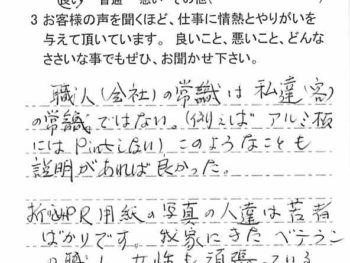 良い 普通 悪い その他(
3 お客様の声を聞くほど、仕事に情熱とやりがいを
与えて頂いています。 良いこと、悪いこと、どんな
ささいな事でもぜひ、お聞かせ下さい。
職人(会社)の常識は 私達(客)
の常識ではない。(例えば アルミ板
にはPintしない) このようなことも
説明があれば良かった。
折込PR用紙の写真の人達は若者
ばかりです。 我家にきた ベテラン
の職人、女性も頑張っている